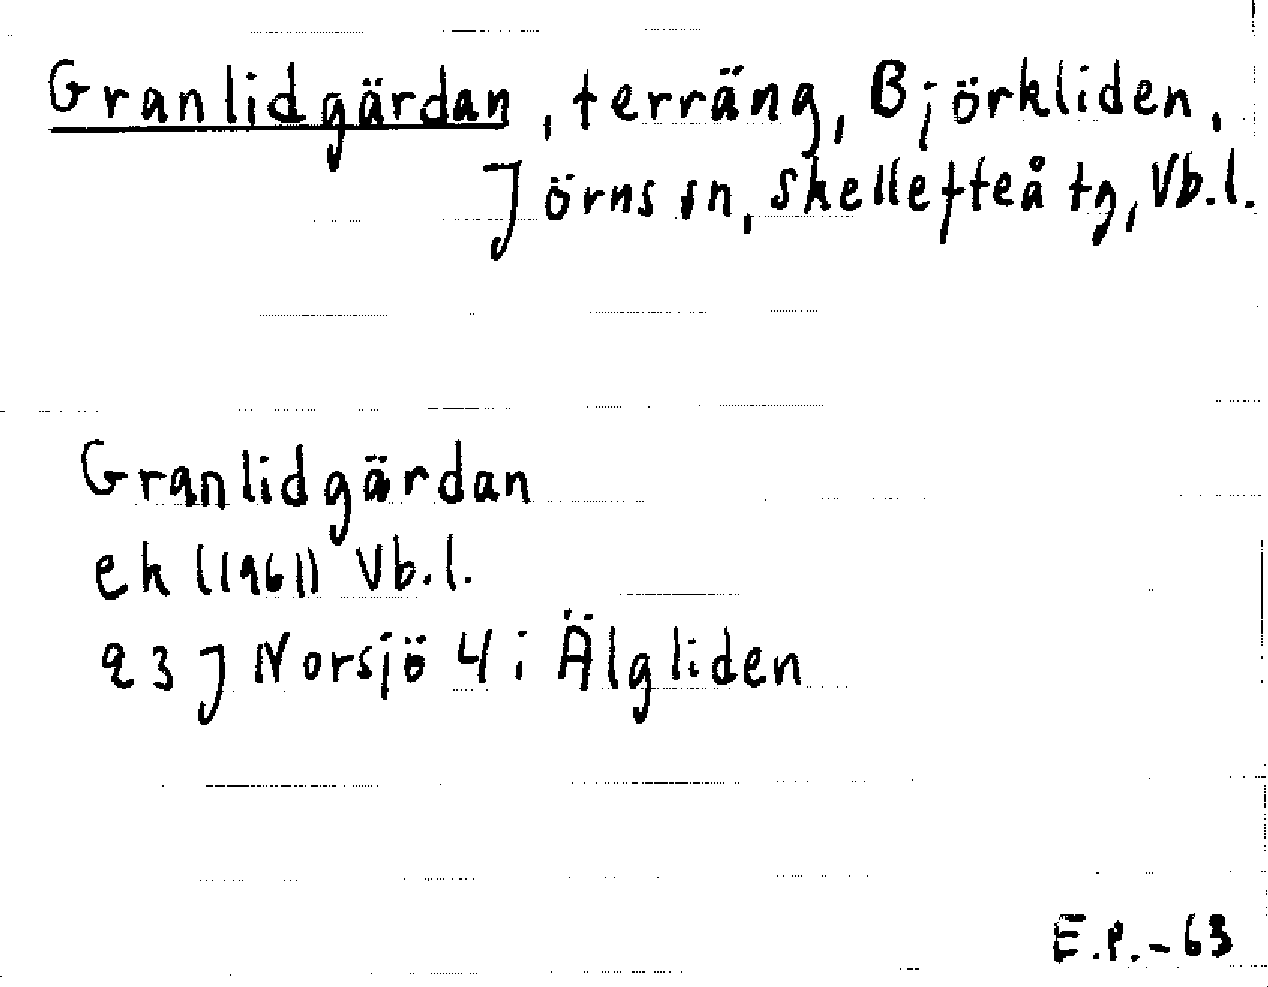 Granlidgärdan, terräng, Björkliden,
Jörns sn, Skellefteå tg, Vb.l.
Granlidgärdan
ek (1961) Vb.l.
23 J Norsjö 4 i Älgliden
E.P.-63